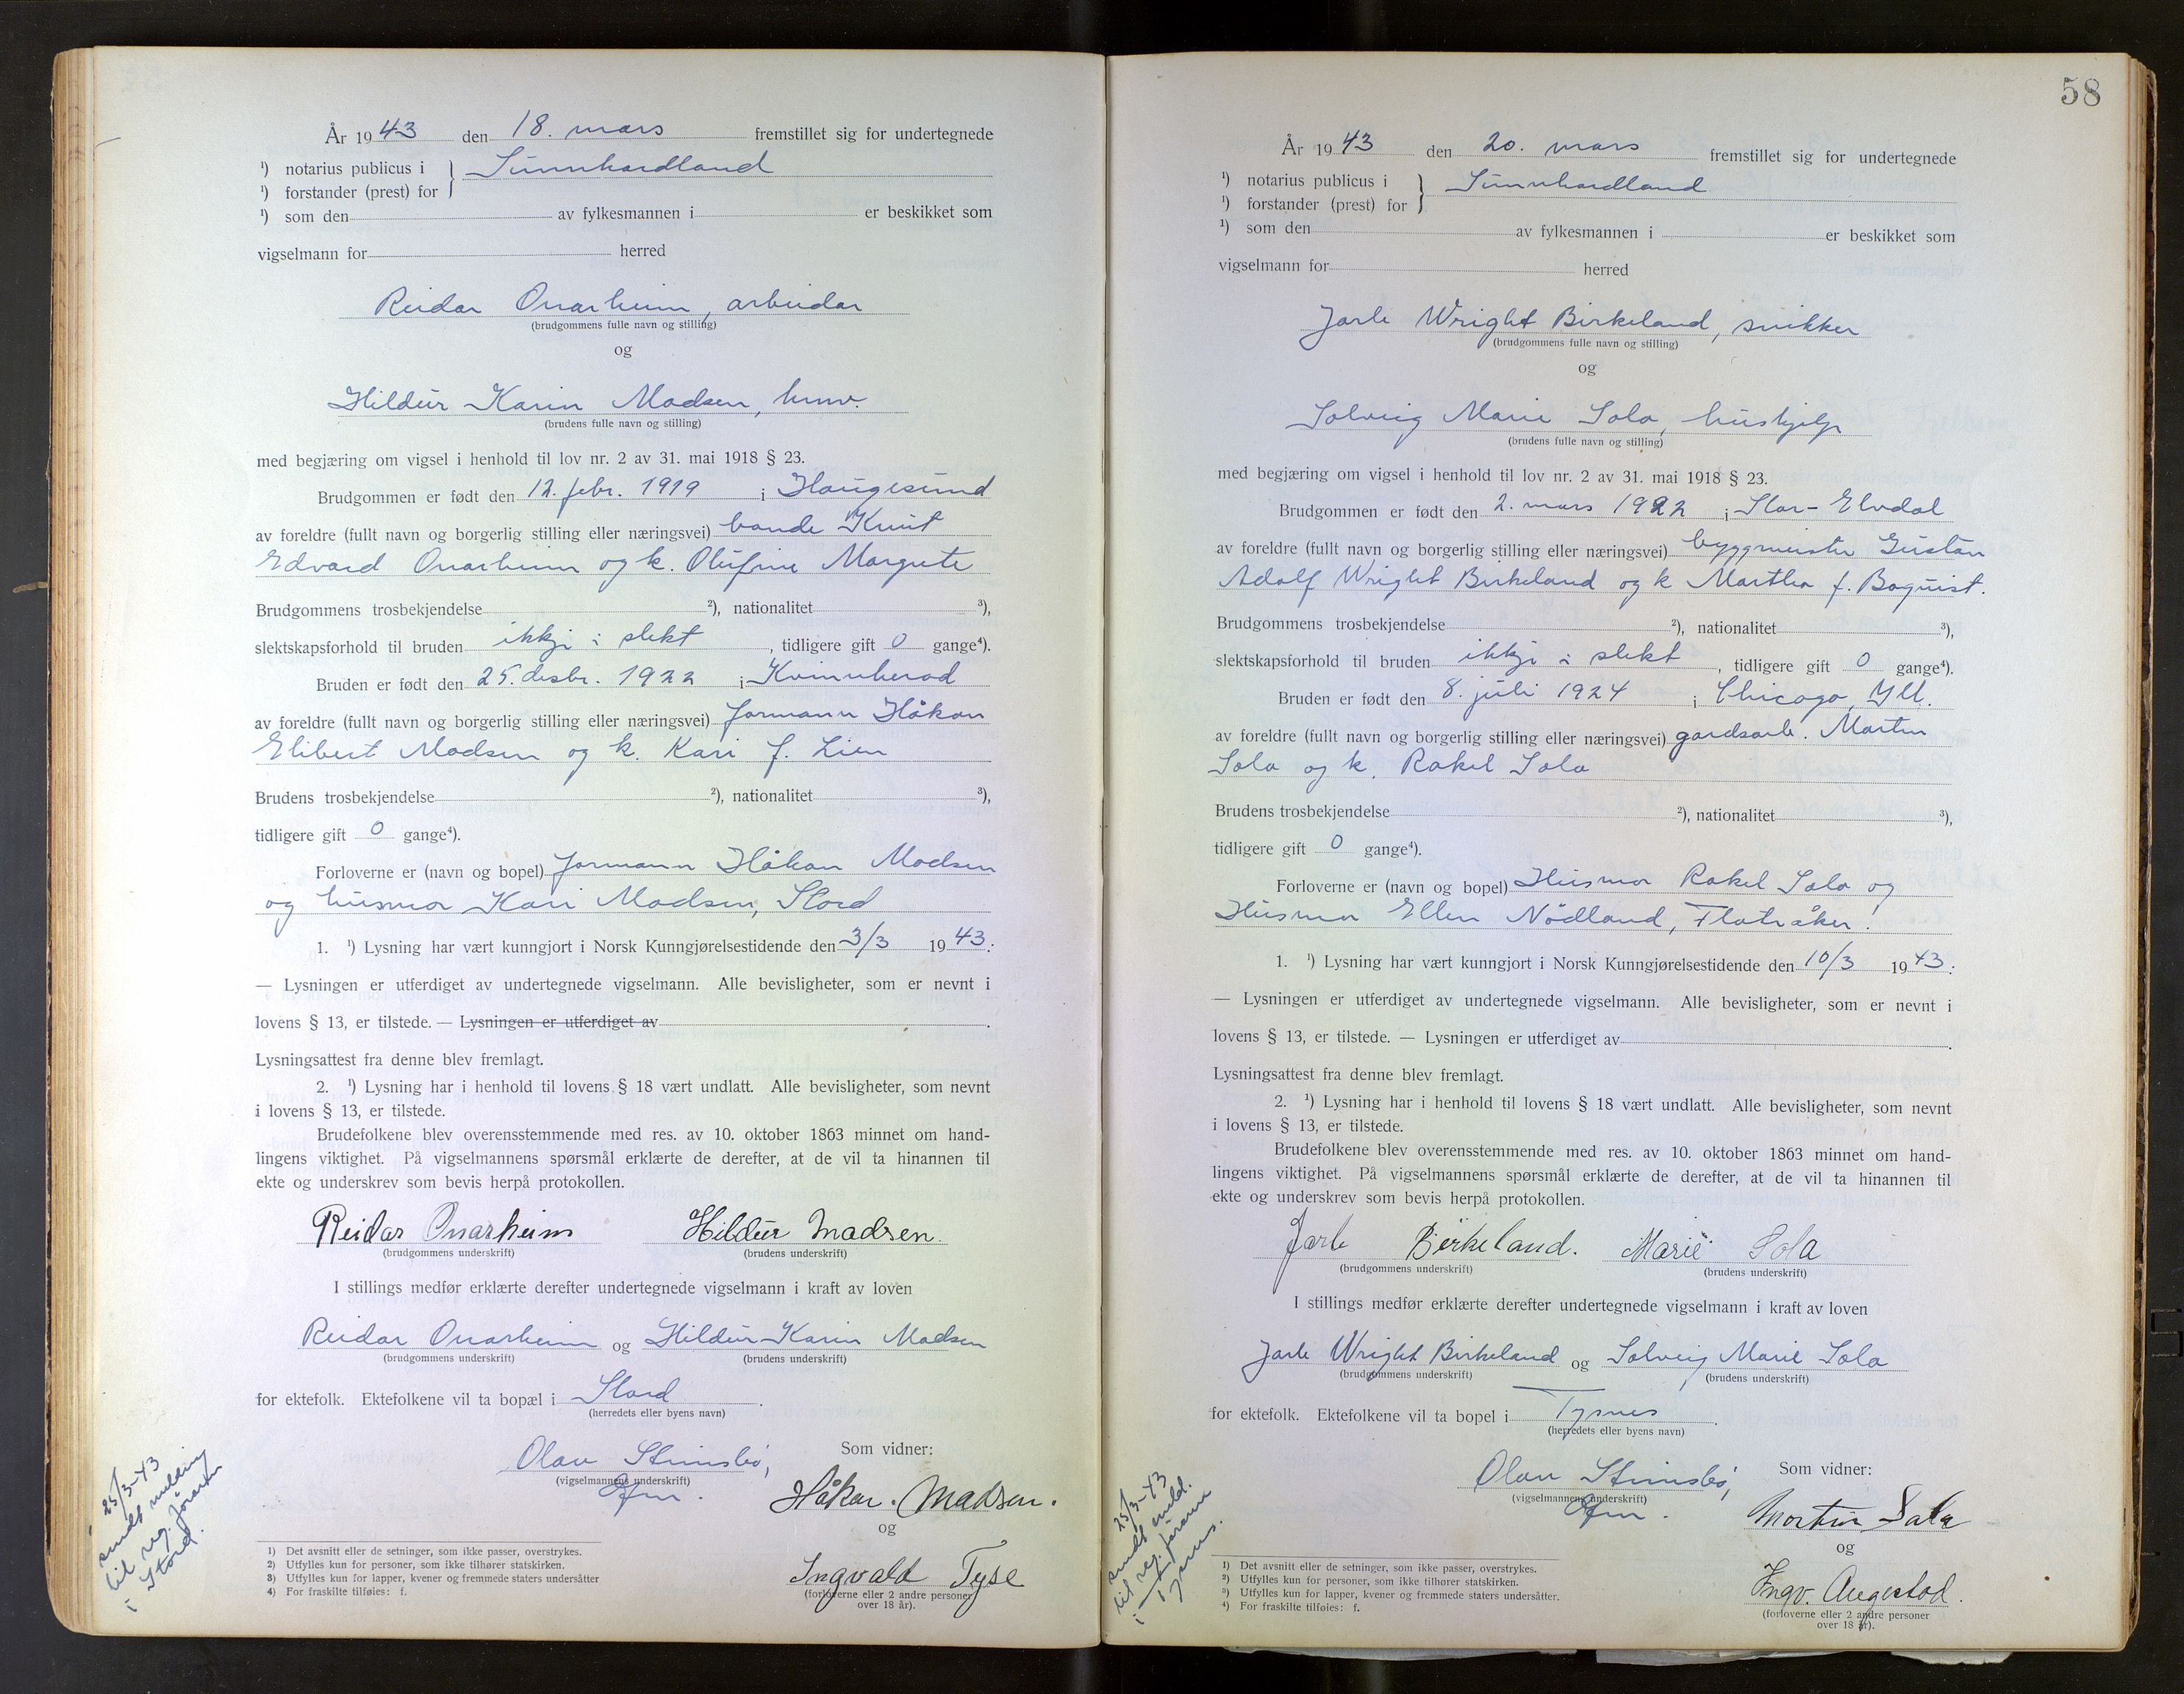 År 1943 den 18. mars fremstillet sig for undertegnede
¹) notarius publicus i } Sunnhordland
¹) forstander (prest) for
¹) som den av fylkesmannen i er beskikket som
vigselmann for herred
Reidar Onarheim, arbeidar
(brudgommens fulle navn og stilling)
og
Hildur Karin Madsen, husv.
(brudens fulle navn og stilling)
med begjæring om vigsel i henhold til lov nr. 2 av 31. mai 1918 § 23.
Brudgommen er født den 12. febr. 1919 i Haugesund
av foreldre (fullt navn og borgerlig stilling eller næringsvei) bonde Knut
Edvard Onarheim og k. Olufine Margrete
Brudgommens trosbekjendelse ²), nationalitet ³),
slektskapsforhold til bruden ikkje i slekt, tidligere gift 0 gange⁴).
Bruden er født den 25. desbr. 1922 i Kvinnherad
av foreldre (fullt navn og borgerlig stilling eller næringsvei) formann Håkon
Elibert Madsen og k. Kari f. Lien
Brudens trosbekjendelse ²), nationalitet ³),
tidligere gift 0 gange⁴).
Forloverne er (navn og bopel) formann Håkon Madsen
og husmor Kari Madsen, Stord
1. ¹) Lysning har vært kunngjort i Norsk Kunngjørelsestidende den 3/3 1943:
— Lysningen er utferdiget av undertegnede vigselmann. Alle bevisligheter, som er nevnt i
lovens § 13, er tilstede. — Lysningen er utferdiget av .
Lysningsattest fra denne blev fremlagt.
2. ¹) Lysning har i henhold til lovens § 18 vært undlatt. Alle bevisligheter, som nevnt
i lovens § 13, er tilstede.
Brudefolkene blev overensstemmende med res. av 10. oktober 1863 minnet om hand-
lingens viktighet. På vigselmannens spørsmål erklærte de derefter, at de vil ta hinannen til
ekte og underskrev som bevis herpå protokollen.
Reidar Onarheim Hildur Madsen.
(brudgommens underskrift) (brudens underskrift)
I stillings medfør erklærte derefter undertegnede vigselmann i kraft av loven
Reidar Onarheim og Hildur Karin Madsen
(brudgommens underskrift) (brudens underskrift)
for ektefolk. Ektefolkene vil ta bopæl i Stord.
(herredets eller byens navn)
Som vidner:
Olav Stensbø,
(vigselmannens underskrift)
Håkon. Madsen.
og
Ingvald Tyse
(forloverne eller 2 andre personer
over 18 år).
25/3-43
sendt melding
til reg. føraren
i Stord.
1) Det avsnitt eller de setninger, som ikke passer, overstrykes.
2) Utfylles kun for personer, som ikke tilhører statskirken.
3) Utfylles kun for lapper, kvener og fremmede staters undersåtter
4) For fraskilte tilføies: f.
58
År 1943 den 20. mars fremstillet sig for undertegnede
¹) notarius publicus i } Sunnhordland
¹) forstander (prest) for
¹) som den av fylkesmannen i er beskikket som
vigselmann for herred
Jarle Wright Birkeland, snikker
(brudgommens fulle navn og stilling)
og
Solveig Marie Sola, hushjelp
(brudens fulle navn og stilling)
med begjæring om vigsel i henhold til lov nr. 2 av 31. mai 1918 § 23.
Brudgommen er født den 2. mars 1922 i Stor-Elvdal
av foreldre (fullt navn og borgerlig stilling eller næringsvei) byggmeister Gustav
Adolf Wright Birkeland og k Martha f. Boquist.
Brudgommens trosbekjendelse ²), nationalitet ³),
slektskapsforhold til bruden ikkje i slekt, tidligere gift 0 gange⁴).
Bruden er født den 8. juli 1924 i Chicago, Ill.
av foreldre (fullt navn og borgerlig stilling eller næringsvei) gardsarb. Martin
Sola og k. Rakel Sola
Brudens trosbekjendelse ²), nationalitet ³),
tidligere gift 0 gange⁴).
Forloverne er (navn og bopel) Husmor Rakel Sola og
Husmor Ellen Nödland, Flatråker.
1. ¹) Lysning har vært kunngjort i Norsk Kunngjørelsestidende den 10/3 1943:
— Lysningen er utferdiget av undertegnede vigselmann. Alle bevisligheter, som er nevnt i
lovens § 13, er tilstede. — Lysningen er utferdiget av .
Lysningsattest fra denne blev fremlagt.
2. ¹) Lysning har i henhold til lovens § 18 vært undlatt. Alle bevisligheter, som nevnt
i lovens § 13, er tilstede.
Brudefolkene blev overensstemmende med res. av 10. oktober 1863 minnet om hand-
lingens viktighet. På vigselmannens spørsmål erklærte de derefter, at de vil ta hinannen til
ekte og underskrev som bevis herpå protokollen.
Jarle Birkeland. Marie Sola
(brudgommens underskrift) (brudens underskrift)
I stillings medfør erklærte derefter undertegnede vigselmann i kraft av loven
Jarle Wright Birkeland og Solveig Marie Sola
(brudgommens underskrift) (brudens underskrift)
for ektefolk. Ektefolkene vil ta bopel i Tysnes.
(herredets eller byens navn)
Som vidner:
Olav Stensbø,
(vigselmannens underskrift)
Martin Sola
og
Ingv. Augestad.
(forloverne eller 2 andre personer
over 18 år).
25/3-43
sendt meld.
til reg. føraren
i Tysnes.
¹) Det avsnitt eller de setninger, som ikke passer, overstrykes.
²) Utfylles kun for personer, som ikke tilhører statskirken.
³) Utfylles kun for lapper, kvener og fremmede staters undersåtter.
⁴) For fraskilte tilføies: f.